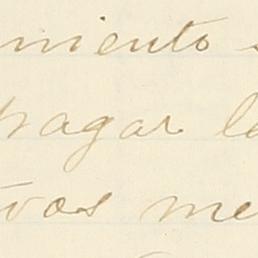 miento
pagar
vos me